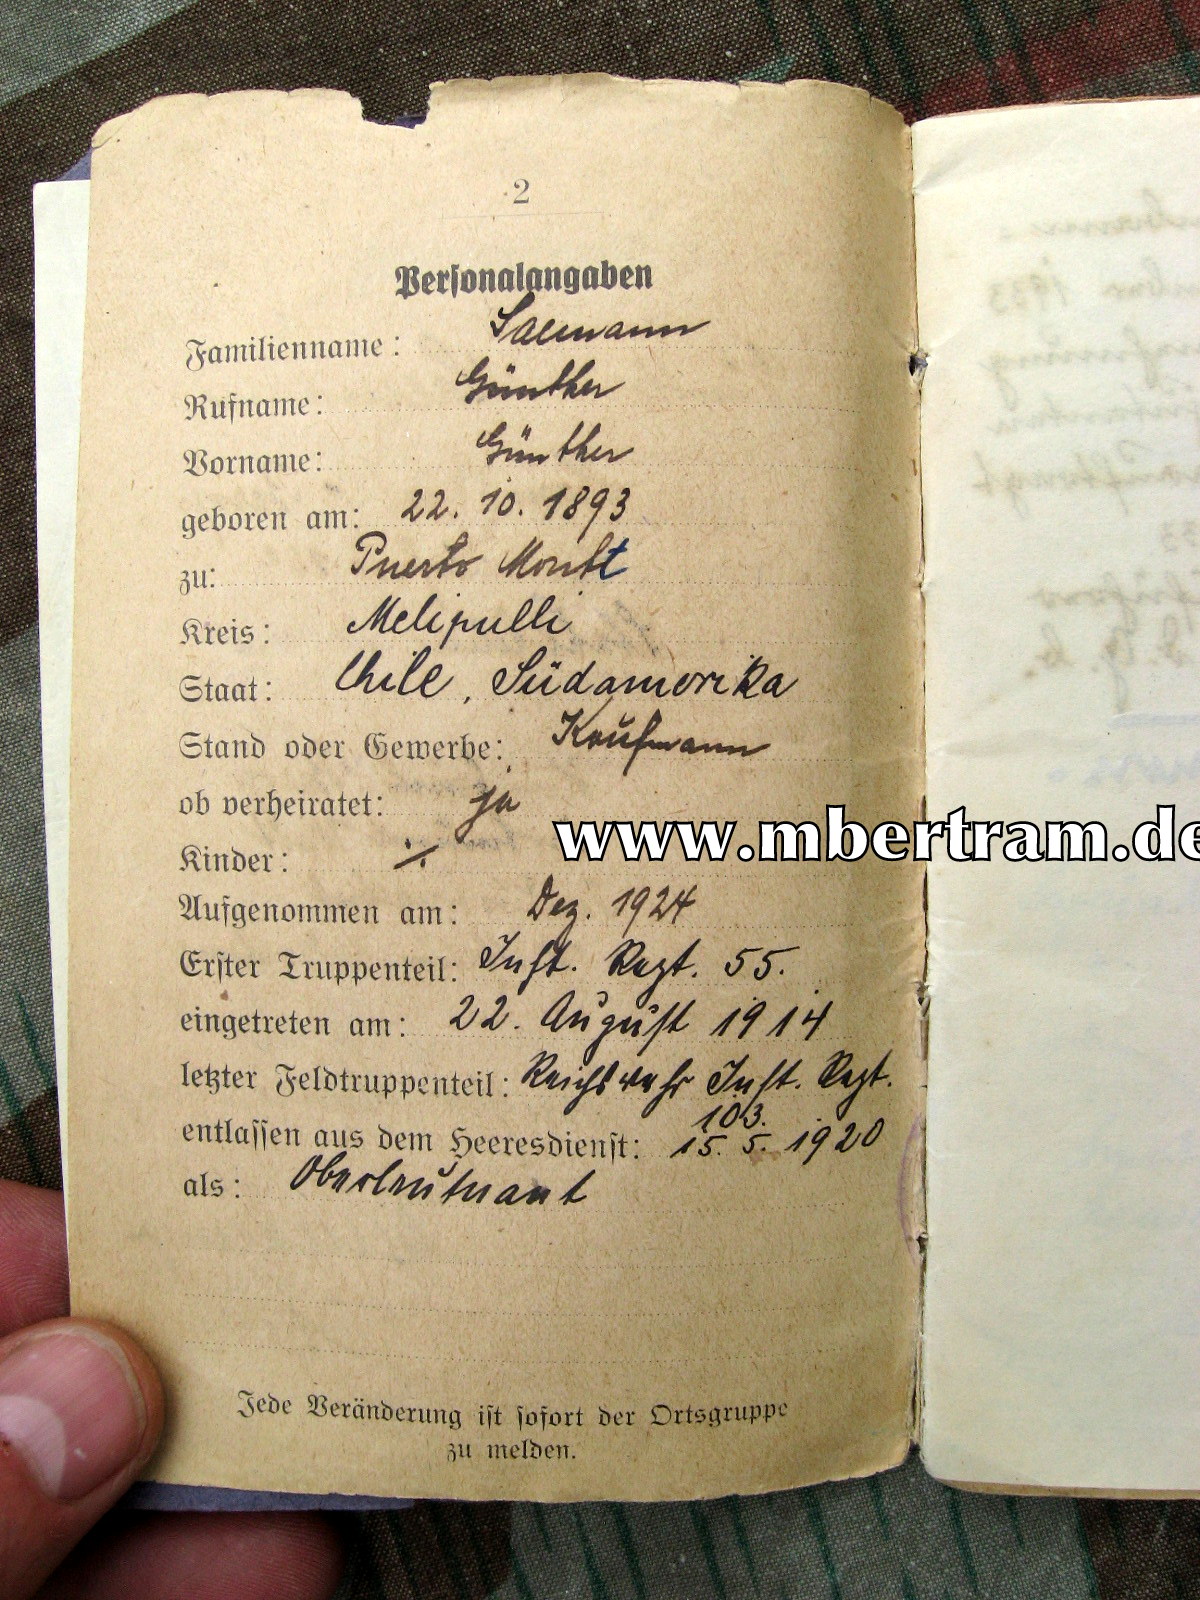 2
Personalangaben
Familienname: Salmann
Rufname: Günther
Vorname: Günther
geboren am: 22. 10. 1893
zu: Puerto Montt
Kreis: Melipulli
Staat: Chile, Südamerika
Stand oder Gewerbe: Kaufmann
ob verheiratet: ja
Kinder: ·/.
Aufgenommen am: Dez. 1924
Erster Truppenteil: Inft. Regt. 55.
eingetreten am: 22. August 1914
letzter Feldtruppenteil: Reichswehr Inft. Regt.
103.
entlassen aus dem Heeresdienst: 15. 5. 1920
als: Oberleutnant
Jede Veränderung ist sofort der Ortsgruppe
zu melden.
www.mbertram.de